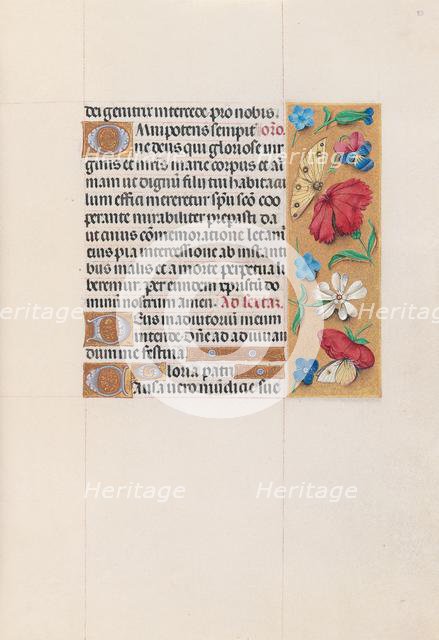 dei genitrix intercede pro nobis.
Omnipotens sempit oro.
ne deus qui gloriose vir
ginis et mris marie corpus et ai
mam ut dignū filii tui habitacu
lum effici mereretur spū scō coo
perante mirabiliter preparasti da
ut cuius cōmemoratione letamur
eius pia intercessione ab instanti
bus malis et a morte perpetua li
beremur per eundem xpistū do
minū nostrum amen. Ad sextas.
Deus in adiutorium meum
intende. Dne ad adiuvan
dum me festina
Gloria patri
Heritage
Heritage
Heritage
Heritage
Heritage
Heritage
Heritage